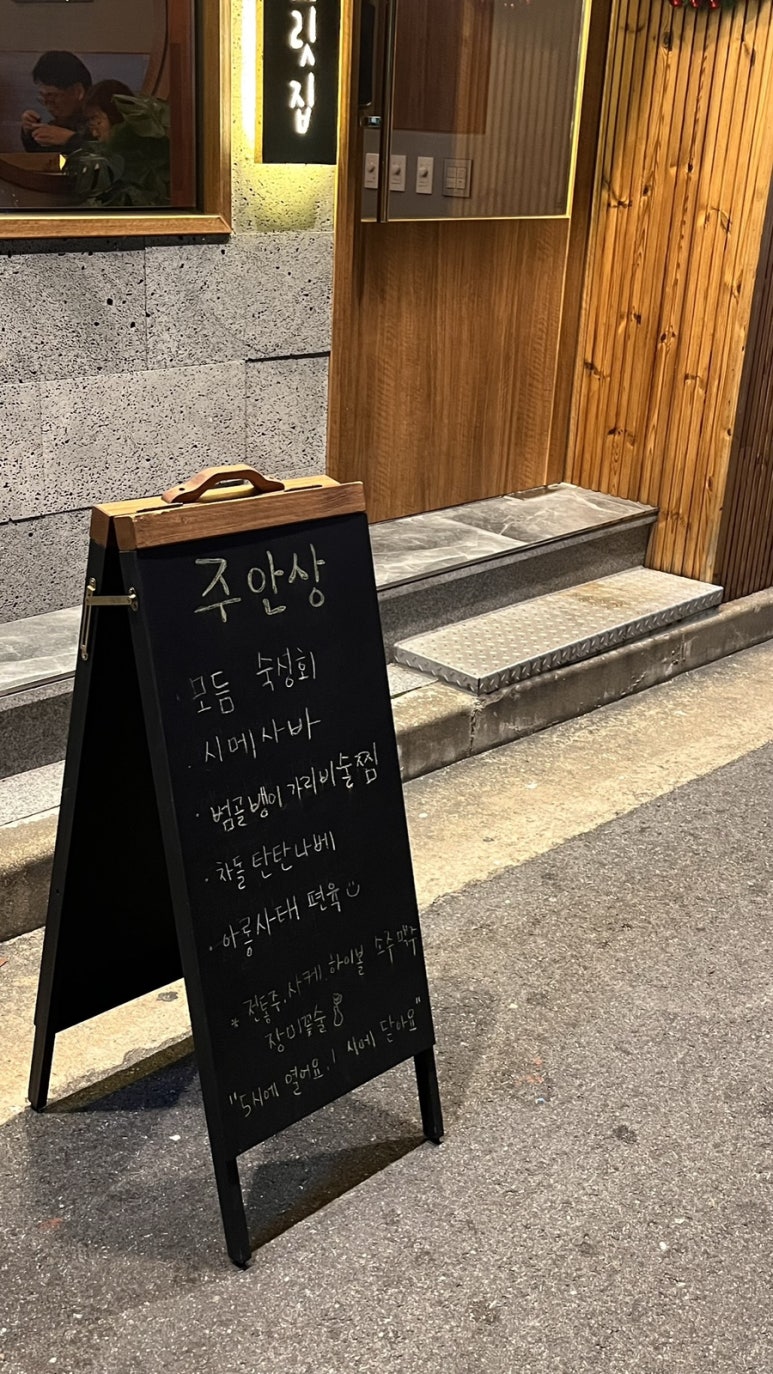 릿집
주안상
· 모듬 숙성회
· 시메사바
· 범골뱅이 가리비술찜
· 차돌탄탄나베
· 아롱사태 편육
* 전통주. 사케. 하이볼 소주 맥주
장미꽃술
"5시에 열어요. 1시에 닫아요"